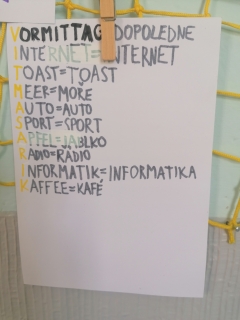 VORMITTAG=DOPOLEDNE
INTERNET=INTERNET
TOAST=TOAST
MEER=MOŘE
AUTO=AUTO
SPORT=SPORT
APFEL=JABLKO
RADIO=RÁDIO
INFORMATIK=INFORMATIKA
KAFFEE=KAFÉ